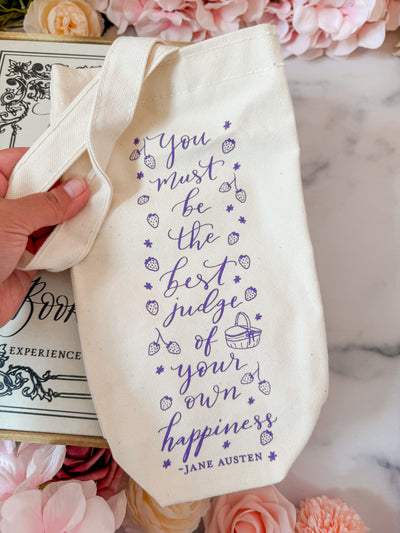 You
must
be
the
best
judge
of
your
own
happiness
-JANE AUSTEN
Book
EXPERIENCE